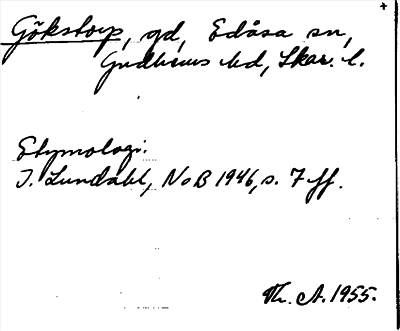 +
Gökstorp, gd, Edåsa sn,
Gudhems hd, Skar. l.
Etymologi.
I. Lundahl, NoB 1946, s. 7 ff.
Th. A. 1955.